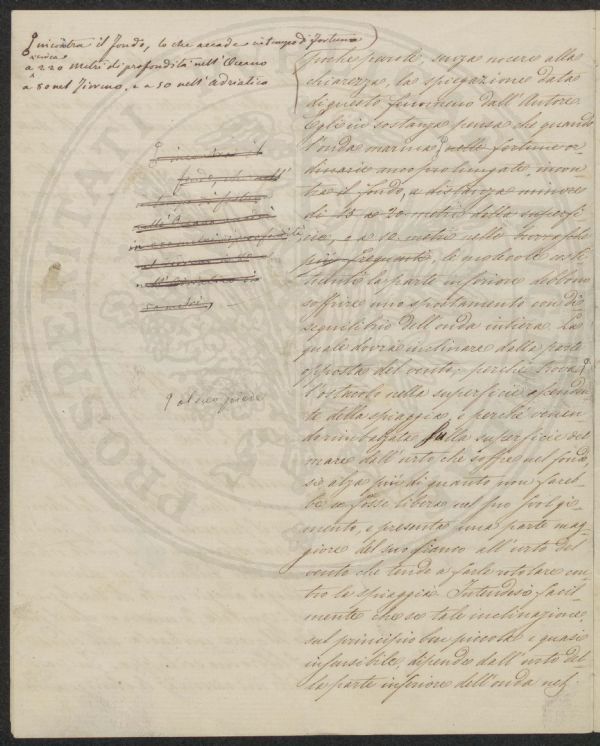 incontra il fondo, lo che accade in tempo di fortuna
circa
a 220 metri di profondità nell'Oceano
a 80 nel Tirreno, e a 50 nell'adriatico
incontra il
fondo,
al suo piede
poche parole, senza nocere alla
chiarezza, la spiegazione data
di questo fenomeno dall'Autore.
Egli in sostanza pensa che quando
l'onda marina, nelle fortune or-
dinarie anco prolungate, incon-
tra il fondo, a distanza minore
di 15 a 20 metri dalla superfi-
cie, e a 12 metri nelle burrasche
più frequenti, le molecole costi-
tuenti la parte inferiore debbono
soffrire uno spostamento con di-
sequilibrio dell'onda intiera. La
quale dovrà inclinare dalla parte
opposta del vento, perché trova
l'ostacolo nella superficie ascenden-
te della spiaggia, e perché venen-
do rimbalzata sulla superficie del
mare dall'urto che soffre nel fondo,
si alza più di quanto non fareb-
be se fosse libera nel suo svolgi-
mento, e presenta una parte mag-
giore del suo fianco all'urto del
vento che tende a farla rotolare con-
tro la spiaggia. Intendesi facil-
mente che se tale inclinazione,
sul principio ben piccola e quasi
insensibile, dipende dall'urto del-
la parte inferiore dell'onda nel
PROSPERITATI